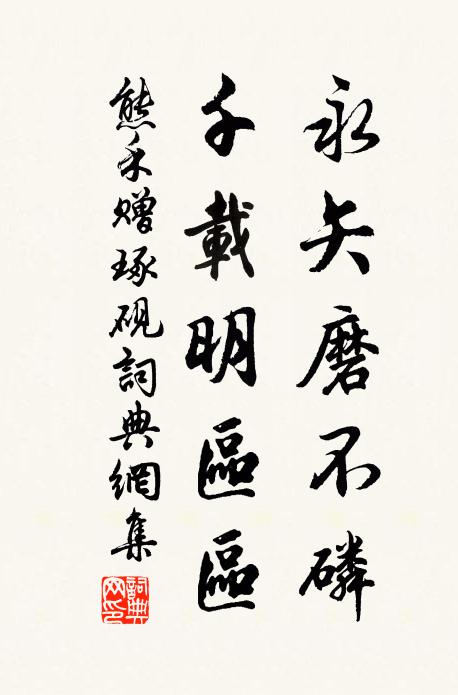 永矢磨不磷
千載明區區
熊禾贈琢硯詞典網集
詞典网印